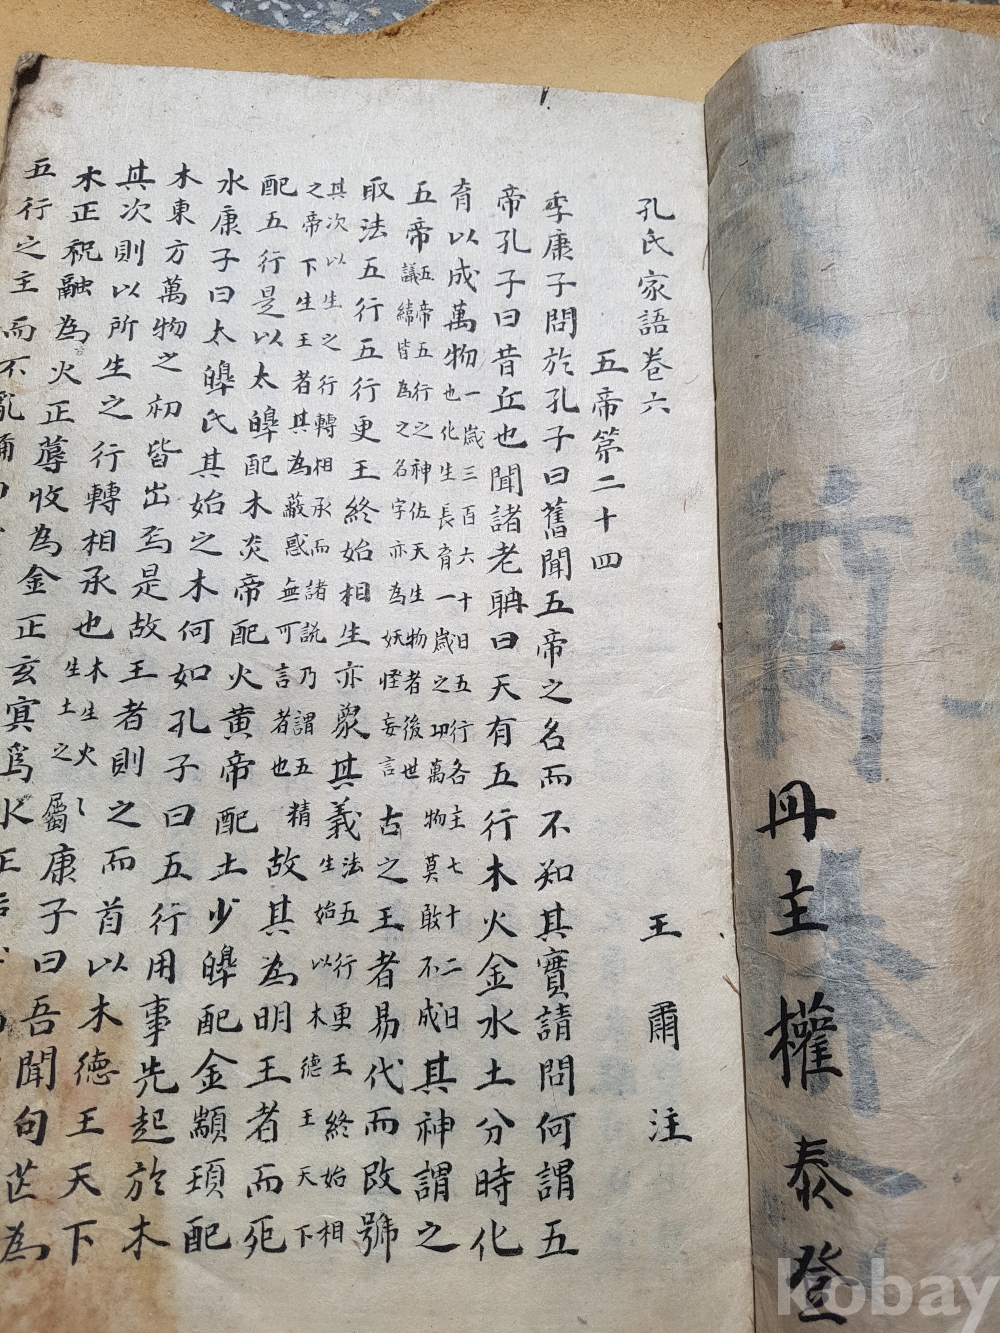 冊主權泰登
孔氏家語卷六
王肅注
五帝第二十四
季康子問於孔子曰舊聞五帝之名而不知其實請問何謂五
帝孔子曰昔丘也聞諸老聃曰天有五行木火金水土分時化
育以成萬物一歲三百六十日五行各主七十二日也化生長育一歲之功萬物莫敢不成其神謂之
五帝五帝五行之神佐天生物者後世議緯皆為之名字亦為妖怪妄言古之王者易代而改號
取法五行五行更王終始相生亦衆其義法五行更王終始相生始以木德王天下
其次以生之行轉相承而諸說乃謂五精之帝下生王者其為蔽惑無可言者也故其為明王者而死
配五行是以太皞配木炎帝配火黃帝配土少皞配金顓頊配
水康子曰太皞氏其始之木何如孔子曰五行用事先起於木
木東方萬物之初皆出焉是故王者則之而首以木德王天下
其次則以所生之行轉相承也木生火生土之屬康子曰吾聞句芒為
木正祝融為火正蓐收為金正玄冥爲水正
五行之主而不亂
kobay